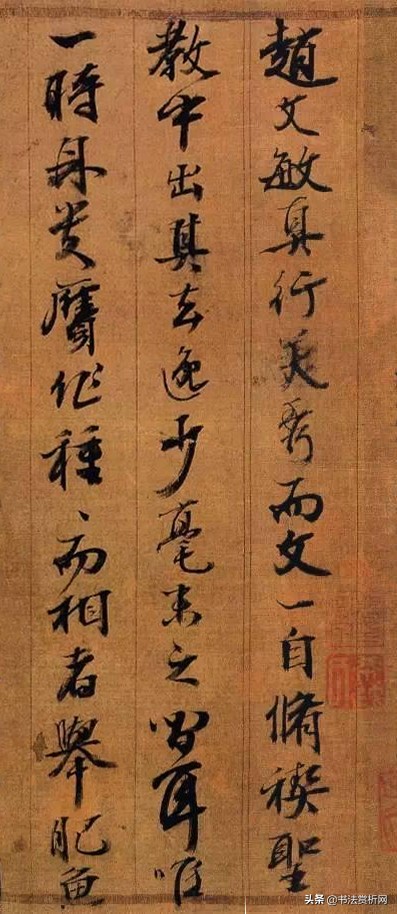 趙文敏真行美秀而文一自脩禊聖
教中出其去逸少毫末之間耳唯
一時身貴贋作種〻而相者舉肥魚
头条 @书法赏析网